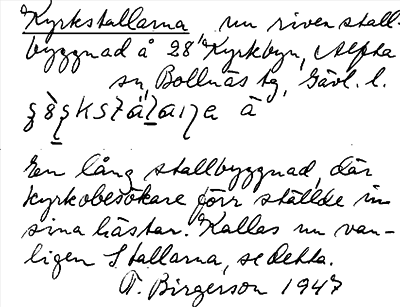 Kyrkstallarna nu riven stall-
byggnad å 28¹ Kyrkbyn, Alfta
sn, Bollnäs tg, Gävl. l.
à
En lång stallbyggnad, där
kyrkobesökare förr ställde in
sina hästar. Kallas nu van-
ligen Stallarna, se detta.
T. Birgerson 1947